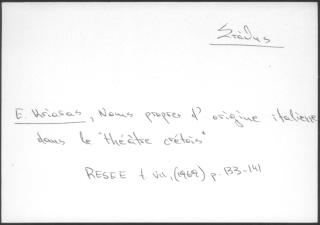 E. Kriaras, Noms propres d' origine italienne
dans le "théâtre crétois"
RESEE t. VII, (1969) p. 133-141